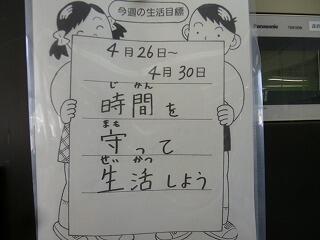 今週の生活目標
4月26日〜
4月30日
じかん
時間を
まも
守って
せいかつ
生活しよう
Panasonic